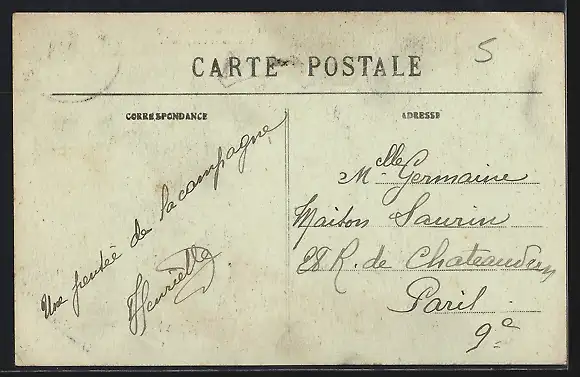 5
CARTE POSTALE
CORRESPONDANCE
ADRESSE
Une pensée de la campagne
Henriette
Melle Germaine
Maison Saurin
28 R. de Chateaudun
Paris
9e